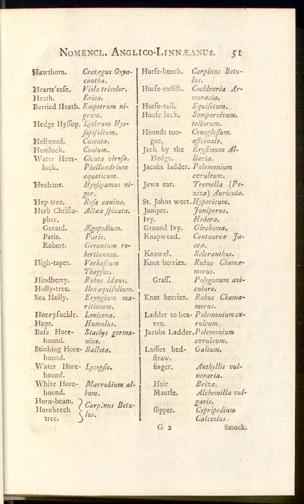 NOMENCL. ANGLICO-LINNÆANUS. 51
Hawthorn. Cratægus Oxya-
cantha.
Hearts'ease. Viola tricolor.
Heath. Erica.
Berried Heath. Empetrum ni-
grum.
Hedge Hyssop. Lythrum Hys-
sopifolium.
Hellweed. Cuscuta.
Hemlock. Conium.
Water Hem- Cicuta virosa.
luck. Phellandrium
aquaticum.
Henbane. Hyoscyamus ni-
ger.
Hep-tree. Rosa canina.
Herb Christo- Actæa spicata.
pher.
Gerard. Ægopodium.
Paris. Paris.
Robert. Geranium ro-
bertianum.
High-taper. Verbascum
Thapsus.
Hindberry. Rubus Idæus.
Holly-tree. Ilex aquifolium.
Sea Holly. Eryngium ma-
ritimum.
Honeysuckle. Lonicera.
Hops. Humulus.
Base Hore- Stachys germa-
hound. nica.
Stinking Hore- Ballota.
hound.
Water Hore- Lycopus.
hound.
White Hore- Marrubium al-
hound. bum.
Horn-beam. Carpinus Betu-
Hornbeech lus.
tree.
Horse-beech. Carpinus Betu-
lus.
Horse-radish. Cochlearia Ar-
moracia.
Horse-tail. Equisetum.
House leek. Sempervivum.
tectorum.
Hounds ton- Cynoglossum.
gue. officinale.
Jack by the Erysimum Al-
Hedge. liaria.
Jacobs ladder. Polemonium
cæruleum.
Jews ear. Tremella (Pe-
ziza) Auricula.
St. Johns wort. Hypericum.
Juniper. Juniperus.
Ivy. Hedera.
Ground Ivy. Glechoma.
Knapweed. Centaurea Ja-
cea.
Knawel. Scleranthus.
Knot berries. Rubus Chamæ-
morus.
Grass. Polygonum avi-
culare.
Knot berries. Rubus Chamæ-
morus.
Ladder to hea- Polemonium cæ-
ven. ruleum.
Jacobs Ladder. Polemonium
cæruleum.
Ladies bed- Galium.
straw.
finger. Anthyllis vul-
neraria.
Hair Briza.
Mantle. Alchemilla vul-
garis.
slipper. Cypripedium
Calceolus.
G 2 Smock.